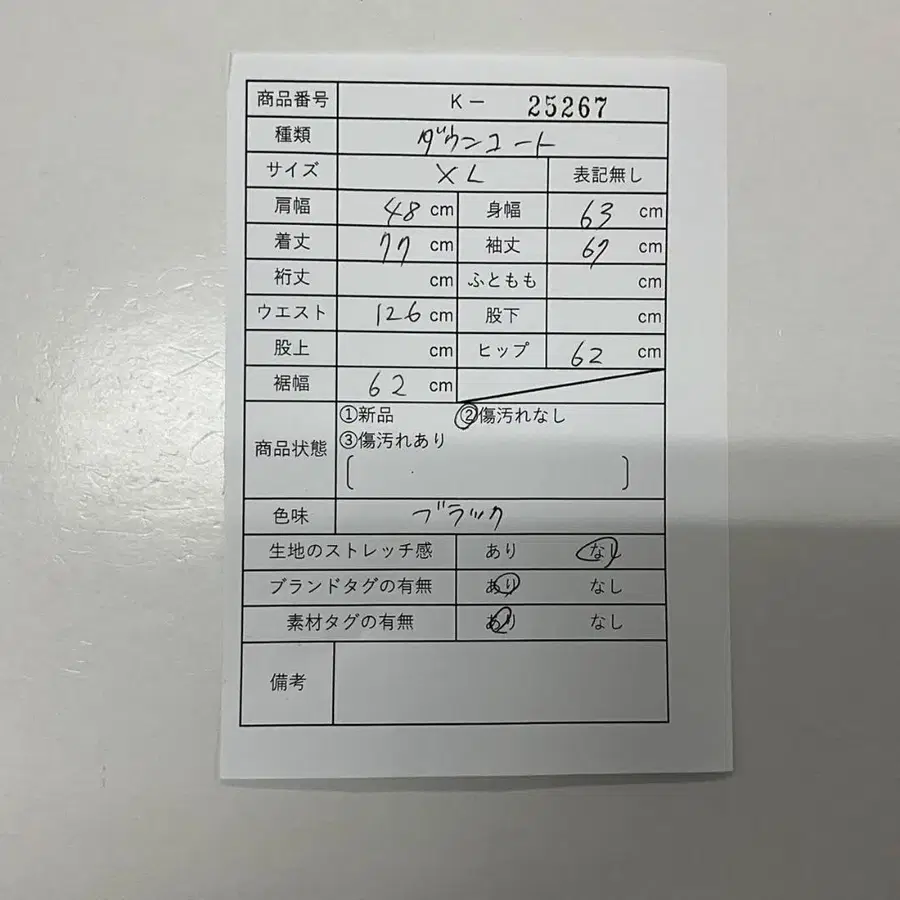 商品番号 K- 25267
種類 ダウンコート
サイズ XL 表記無し
肩幅 48 cm 身幅 63 cm
着丈 77 cm 袖丈 67 cm
裄丈 cm ふともも cm
ウエスト 126 cm 股下 cm
股上 cm ヒップ 62 cm
裾幅 62 cm
①新品 ②傷汚れなし
商品状態 ③傷汚れあり
[ ]
色味 ブラック
生地のストレッチ感 あり なし
ブランドタグの有無 あり なし
素材タグの有無 あり なし
備考